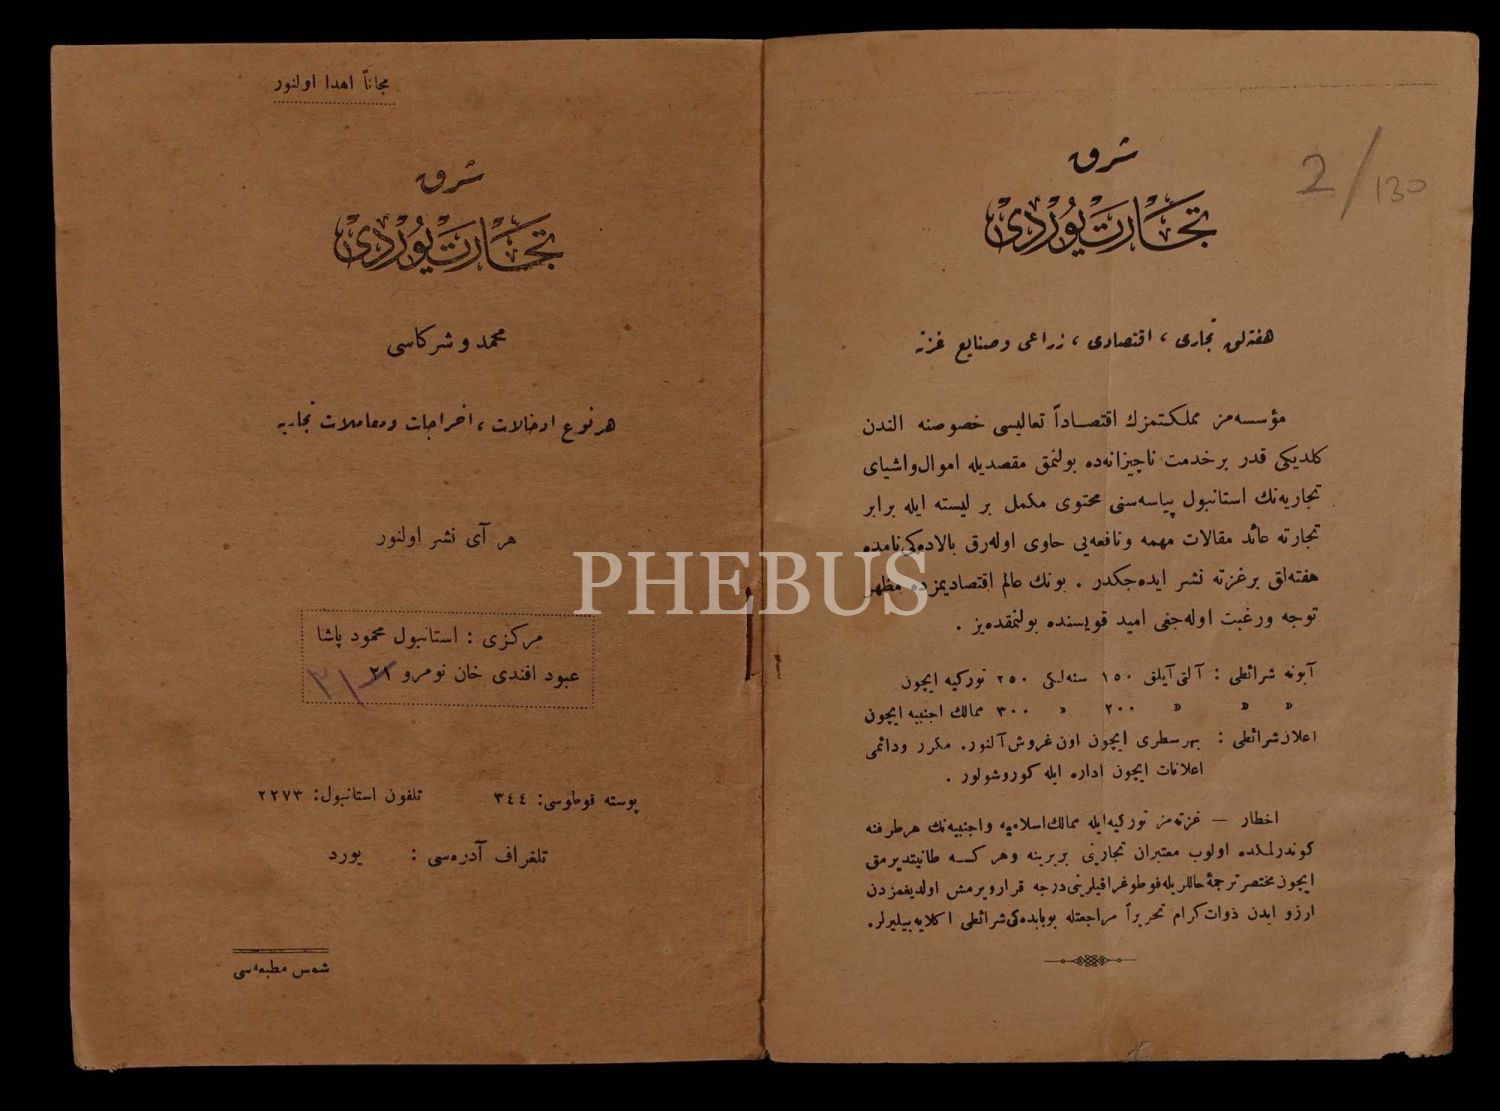 مجاناً اهدا اولنور
شرق
تجارت یوردی
محمد و شرکاسی
هر نوع ادخالات ، اخراجات و معاملات تجاریه
هر آی نشر اولنور
مرکزی : استانبول محمود پاشا
عبود افندی خان نومرو ٢١
٣١
پوسته قوطوسی: ٣٤٤   تلفون استانبول: ٢٢٧٣
تلغراف آدره‌سی :   یورد
شمس مطبعه‌سی
2/130
شرق
تجارت یوردی
هفته‌لق تجاری ، اقتصادی ، زراعی و صنایع غزته
مؤسسه‌مز مملکتمزك اقتصاداً تعالیسی خصوصنه الندن
کلدیکی قدر بر خدمت ناچیزانه‌ده بولنمق مقصدیله اموال واشیای
تجاریه‌نك استانبول پیاسه‌سنی محتوی مکمل بر لیسته ایله برابر
تجارته عائد مقالات مهمه ونافعه‌یی حاوی اوله‌رق بالاده‌کی نامده
هفته‌لق بر غزته نشر ایده‌جکدر . بونك عالم اقتصادیمزده مظهر
توجه ورغبت اوله‌جغی امید قویسنده بولنمقده‌یز .
آبونه شرائطی : آلتی آیلق ١٥٠ سنه‌لکی ٢٥٠ تورکیه ایچون
»   »   »   ٢٠٠   »   ٣٠٠ ممالك اجنبیه ایچون
اعلان شرائطی : بهر سطری ایچون اون غروش آلنور. مکرر ودائمی
اعلانات ایچون اداره ایله کوروشولور .
اخطار — غزته‌مز تورکیه ایله ممالك اسلامیه و اجنبیه‌نك هر طرفنه
کوندرلمکده اولوب معتبران تجارینی بربرینه وهر کسه طانیتدیرمق
ایچون مختصر ترجمهٔ حاللریله فوطوغرافیلرینی درجه قرار ویرمش اولدیغمزدن
ارزو ایدن ذوات کرام تحریراً مراجعتله بوبابده‌کی شرائطی اکلایه بیلیرلر.
PHEBUS